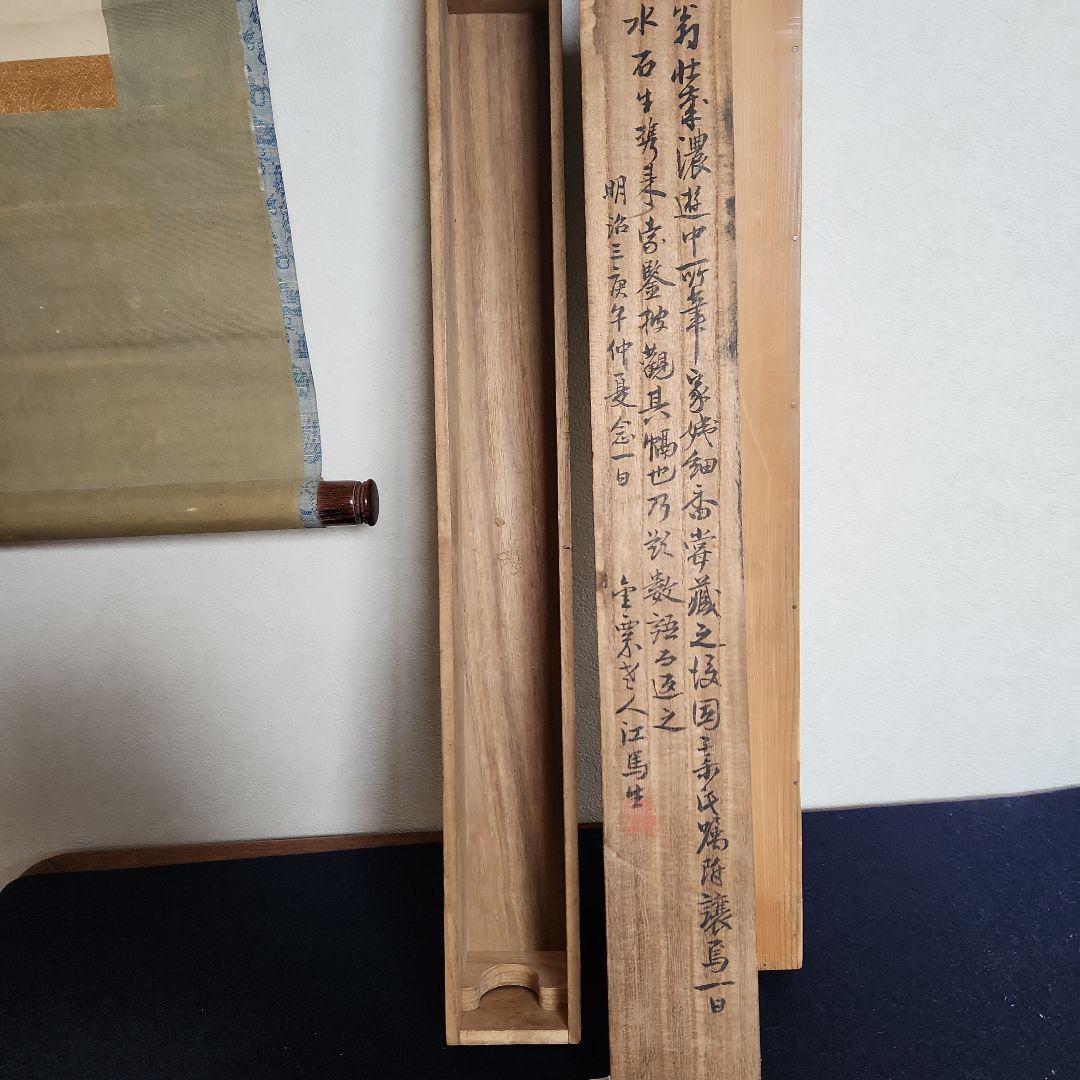 翁壮歳濃遊中所筆家姨細香嘗蔵之後因素氏嘱附譲焉一日
水石生携来索鑒披観其幅也乃題数語而返之
明治三庚午仲夏念一日
金粟老人江馬生